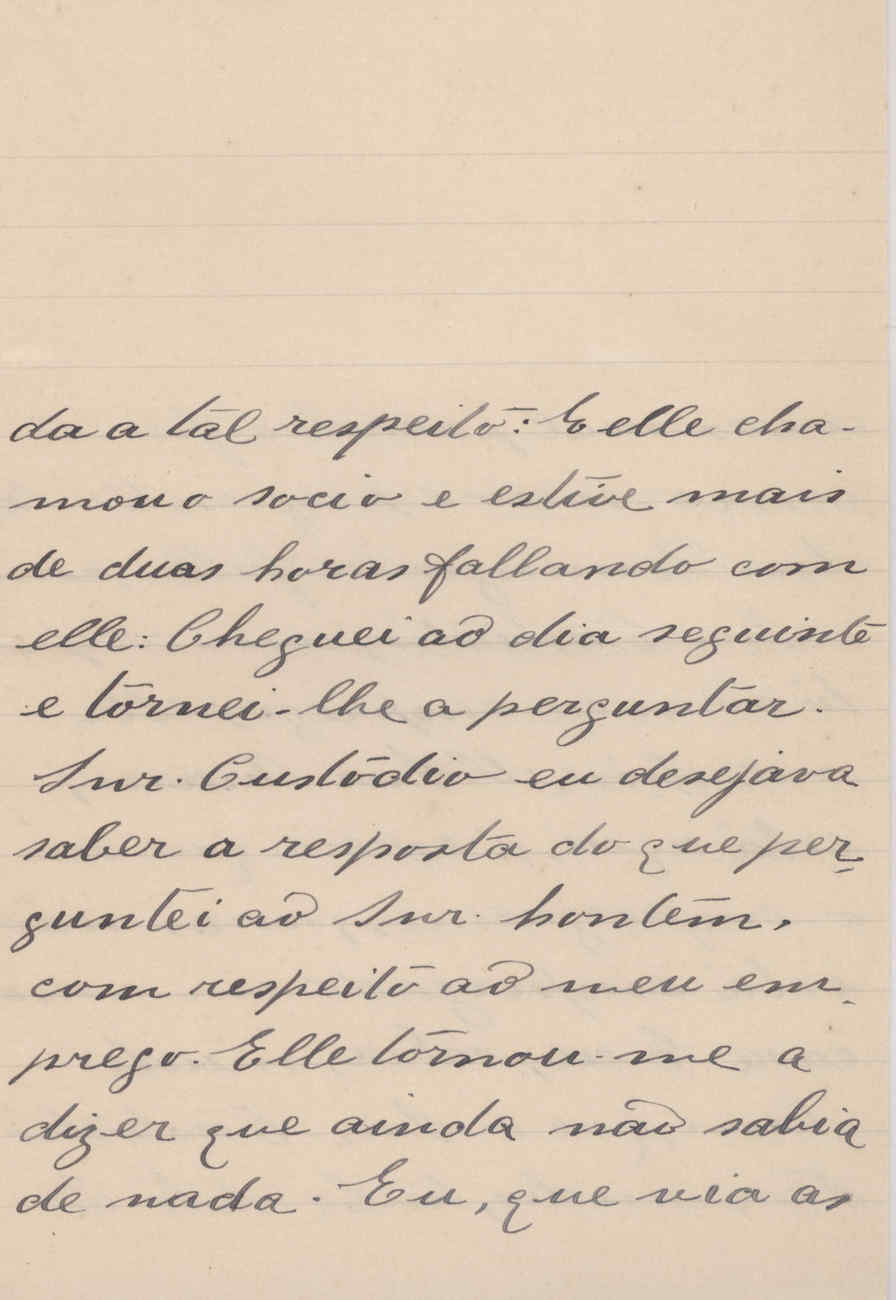 da a tal respeito: E elle cha-
mou o socio e estive mais
de duas horas fallando com
elle: Cheguei aõ dia seguinte
e tornei-lhe a perguntar.
Snr. Custódio eu desejava
saber a resposta do que per-
guntei aõ Snr. hontem,
com respeito aõ meu em-
prego. Elle tornou-me a
dizer que ainda não sabia
de nada. Eu, que via as